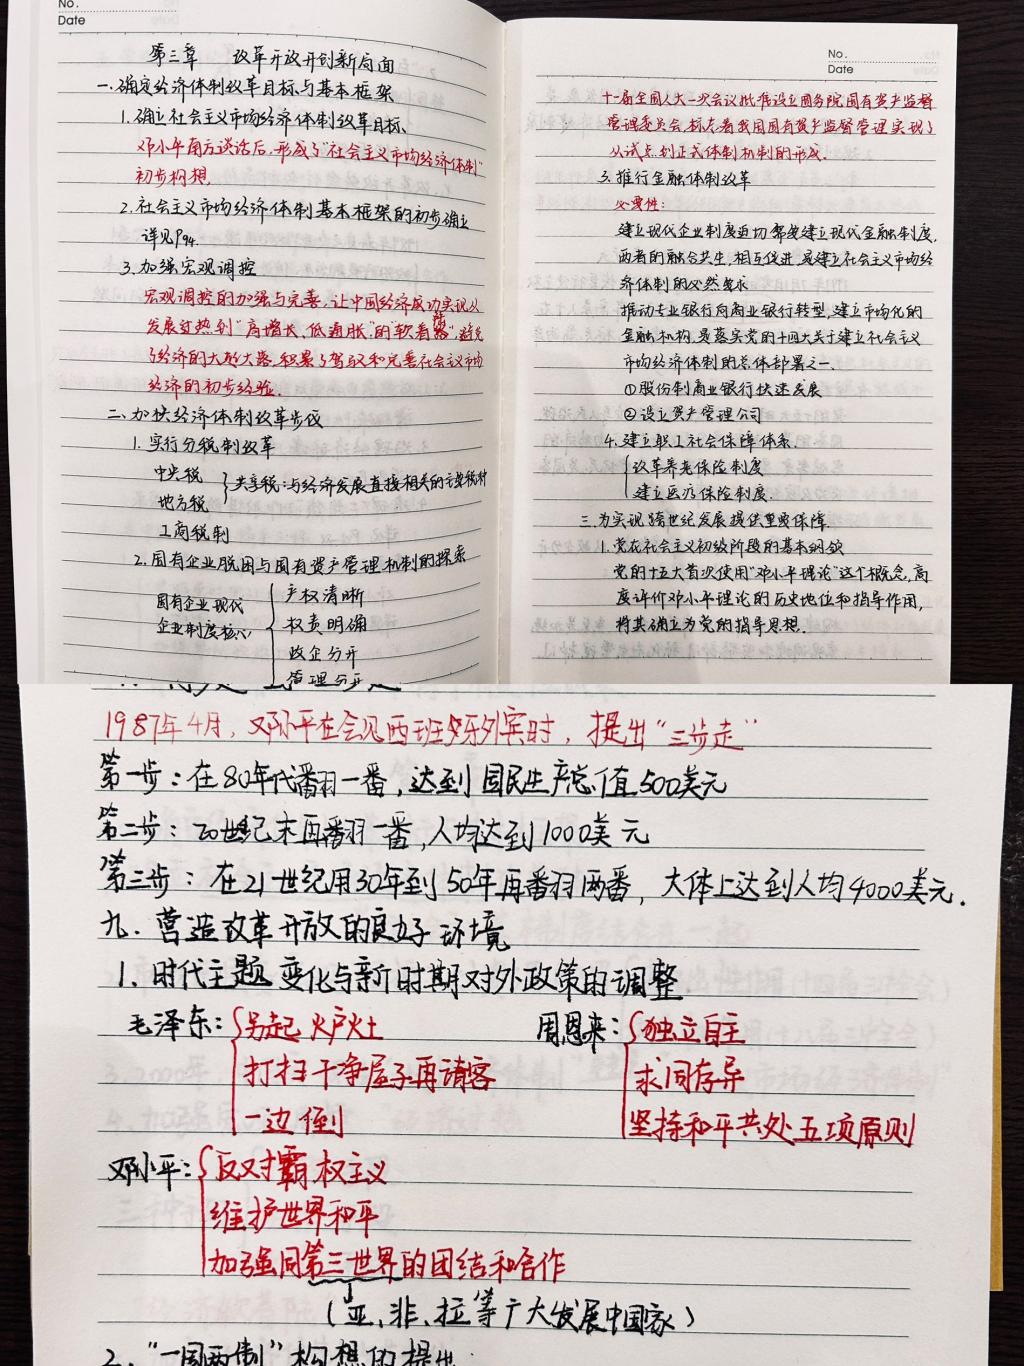 No.
Date
第三章 改革开放开创新局面
一.确定经济体制改革目标与基本框架
1.确立社会主义市场经济体制改革目标.
邓小平南方谈话后,形成了"社会主义市场经济体制"
初步构想.
2.社会主义市场经济体制基本框架的初步确立
详见P94.
3.加强宏观调控
宏观调控的加强与完善,让中国经济成功实现从
发展过热到"高增长、低通胀"的软着陆,避免
了经济的大起大落,积累了驾驭和完善社会主义市场
经济的初步经验.
二.加快经济体制改革步伐
1.实行分税制改革
中央税
地方税
共享税:与经济发展直接相关的主要税种
工商税制
2.国有企业脱困与国有资产管理机制的探索
国有企业现代
企业制度核心
产权清晰
权责明确
政企分开
管理
No.
Date
十一届全国人大一次会议批准设立国务院国有资产监督
管理委员会,标志着我国国有资产监督管理实现了
从试点到正式体制机制的形成.
3.推行金融体制改革
必要性:
建立现代企业制度迫切需要建立现代金融制度,
两者的融合共生,相互促进,是建立社会主义市场经
济体制的必然要求
推动专业银行向商业银行转型,建立市场化的
金融机构,是落实党的十四大关于建立社会主义
市场经济体制的总体部署之一.
①股份制商业银行快速发展
②设立资产管理公司
4.建立职工社会保障体系.
改革养老保险制度
建立医疗保险制度.
三.为实现跨世纪发展提供重要保障.
1.党在社会主义初级阶段的基本纲领
党的十五大首次使用"邓小平理论"这个概念,高
度评价邓小平理论的历史地位和指导作用,
将其确立为党的指导思想.
1987年4月,邓小平在会见西班牙外宾时,提出"三步走"
第一步:在80年代翻一番,达到国民生产总值500美元
第二步:20世纪末再翻一番,人均达到1000美元
第三步:在21世纪用30年到50年再翻两番,大体上达到人均4000美元.
九.营造改革开放的良好环境
1.时代主题变化与新时期对外政策的调整
毛泽东: 另起炉灶
打扫干净屋子再请客
一边倒
周恩来: 独立自主
求同存异
坚持和平共处五项原则
邓小平: 反对霸权主义
维护世界和平
加强同第三世界的团结和合作
(亚、非、拉等广大发展中国家)
2."一国两制"构想的提出